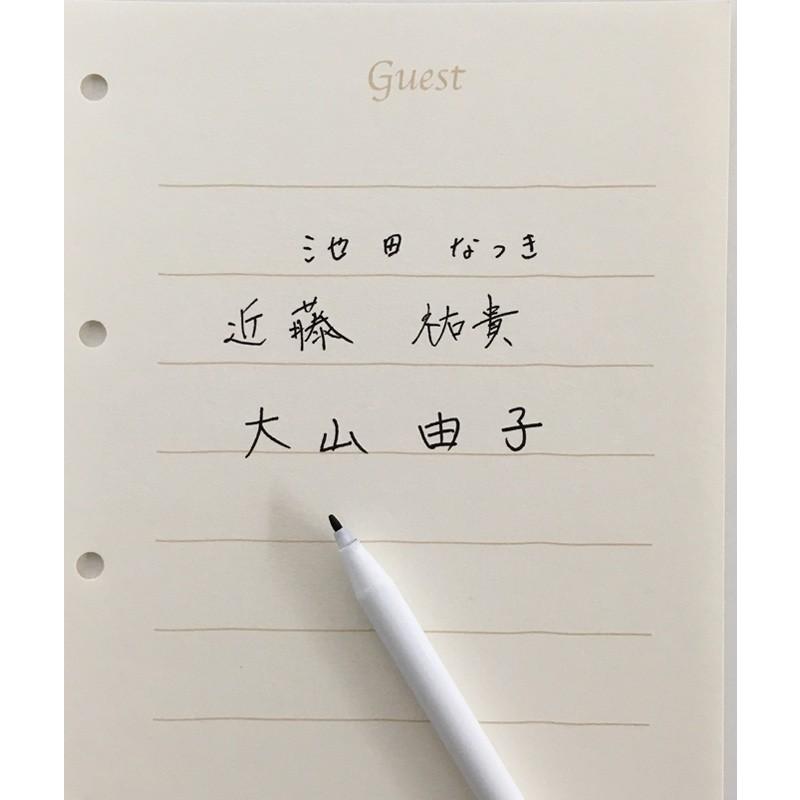 Guest
池田 なつき
近藤 祐貴
大山 由子